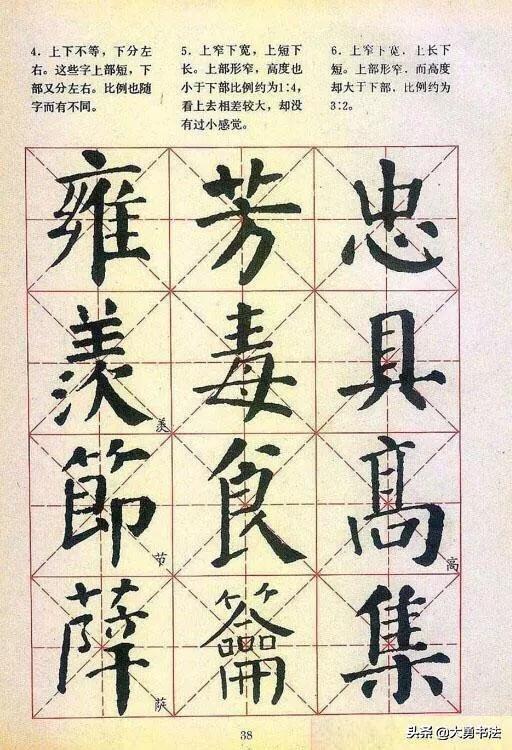 4. 上下不等，下分左
右。这些字上部短，下
部又分左右。比例也随
字而有不同。
5. 上窄下宽，上短下
长。上部形窄，高度也
小于下部比例约为1:4，
看上去相差较大，却没
有过小感觉。
6. 上窄下宽，上长下
短。上部形窄，而高度
却大于下部，比例约为
3:2。
雍 芳 忠
羡 毒 具
羡
節 食 高
节 高
薛 籥 集
萨
38
头条 @大勇书法